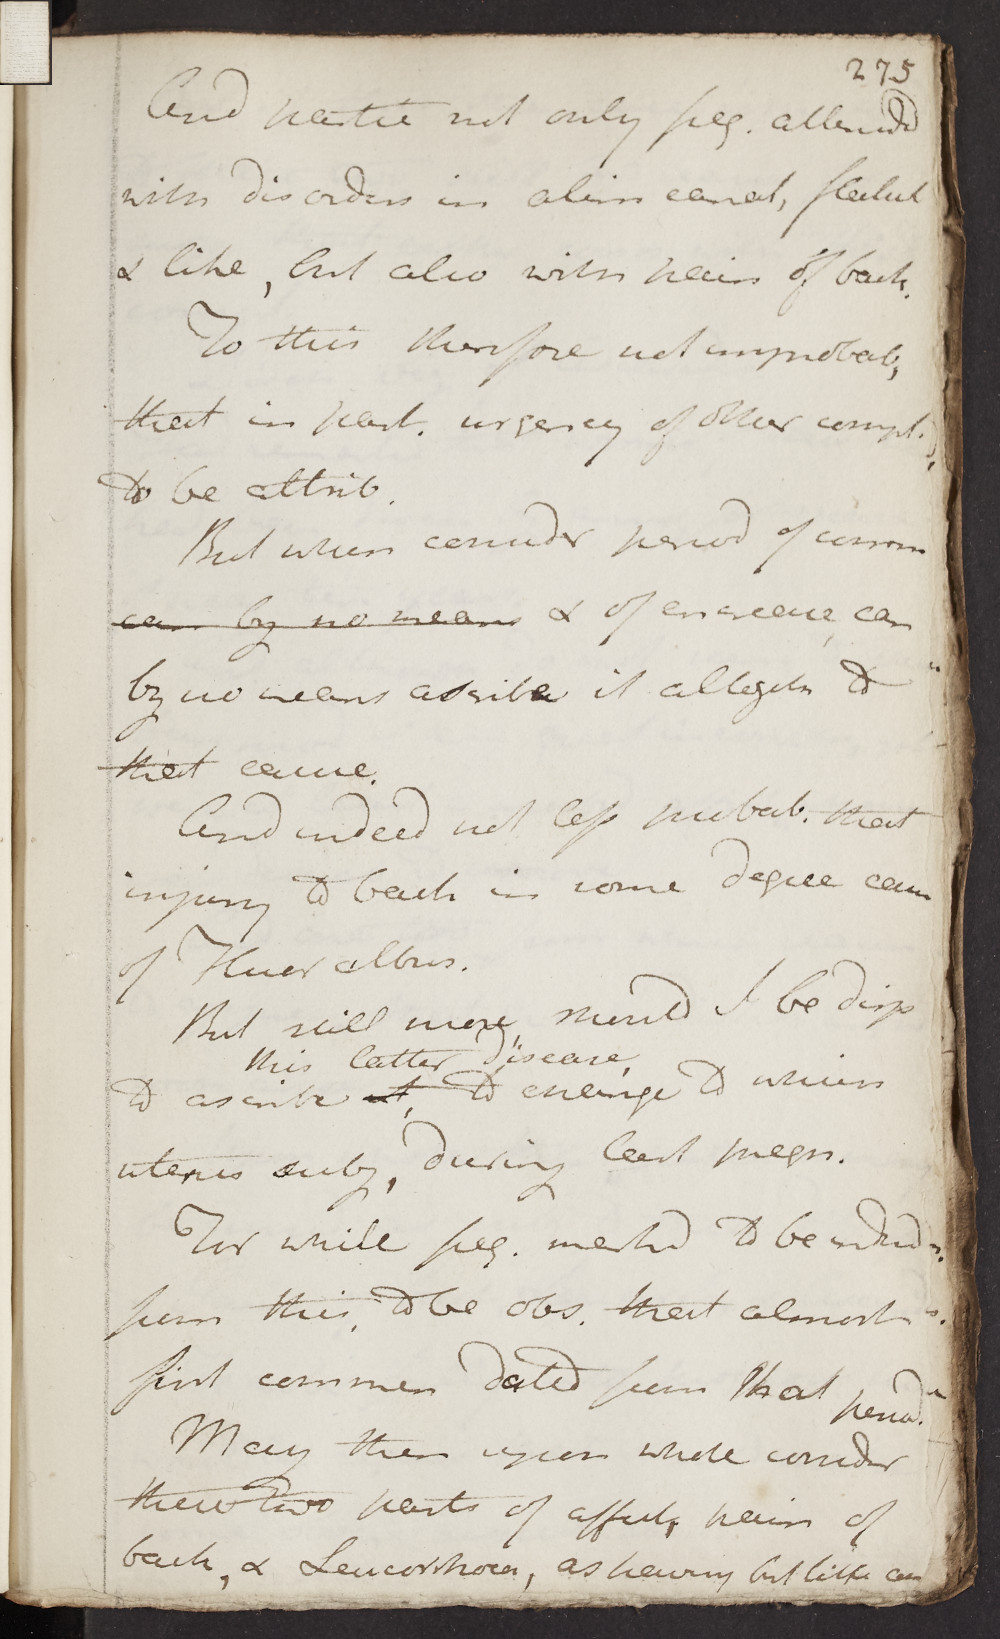 275
And hectic not only freq. attended
with disorders in alim canal, flatul
& like, but also with pain of back.
To this therefore not improbab,
that in part. urgency of other compt.
to be attrib.
But when consider period of comm
can by no means & of encrease, can
by no means ascribe it altogeth to
that cause.
And indeed not less probab. that
injury to back in some degree caus
of Fluor albus.
But still more, should I be disp
this latter disease
to ascribe it, to change to which
uterus subj, during last pregn.
For while freq. marked to be
from this, to be obs. that almost
first commen dated from that period.
May then upon whole consider
these two parts of affect, pain of
back, & Leucorrhoea, as having but little con